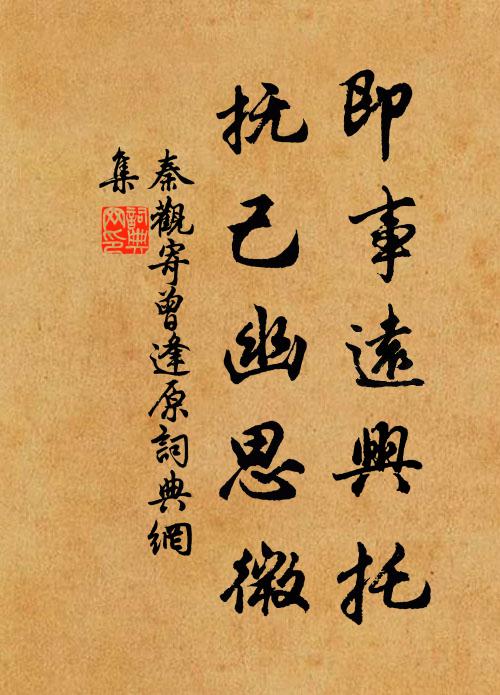 即事遠興托
抚己幽思微
秦觀寄曾逢原詞典網
集
詞典網印